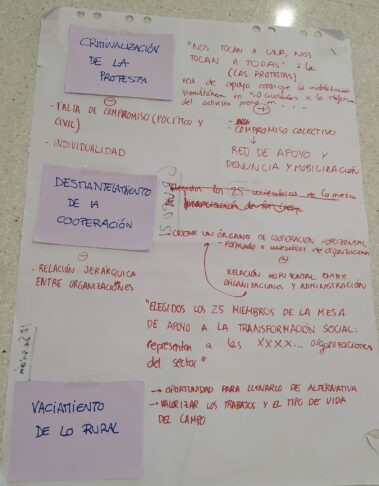 CRIMINALIZACIÓN
DE LA
PROTESTA
"NOS TOCAN A UNA, NOS
TOCAN A TODAS": la
(LAS PROTESTAS)
red de apoyo consigue la movilización
simultánea en 50 ciudades x la defensa
del activista
- FALTA DE COMPROMISO (POLÍTICO Y
CIVIL)
- INDIVIDUALIDAD
- COMPROMISO COLECTIVO
RED DE APOYO Y
DENUNCIA Y MOBILIZACIÓN
DESMANTELAMIENTO
DE LA
COOPERACIÓN
Elegidos los 25 miembros de la mesa
→ CREAR UN ÓRGANO DE COOPERACIÓN HORIZONTAL
- Formado x miembros de organizaciones
- RELACIÓN JERÁRQUICA
ENTRE ORGANIZACIONES
RELACIÓN HORIZONTAL ENTRE
ORGANIZACIONES Y ADMINISTRACIÓN
"ELEGIDOS LOS 25 MIEMBROS DE LA MESA
DE APOYO A LA TRANSFORMACIÓN SOCIAL:
representan a las XXXX... organizaciones
del sector"
VACIAMIENTO
DE LO RURAL
→ OPORTUNIDAD PARA LLENARLO DE ALTERNATIVA
→ VALORIZAR LOS TRABAJOS Y EL TIPO DE VIDA
DEL CAMPO